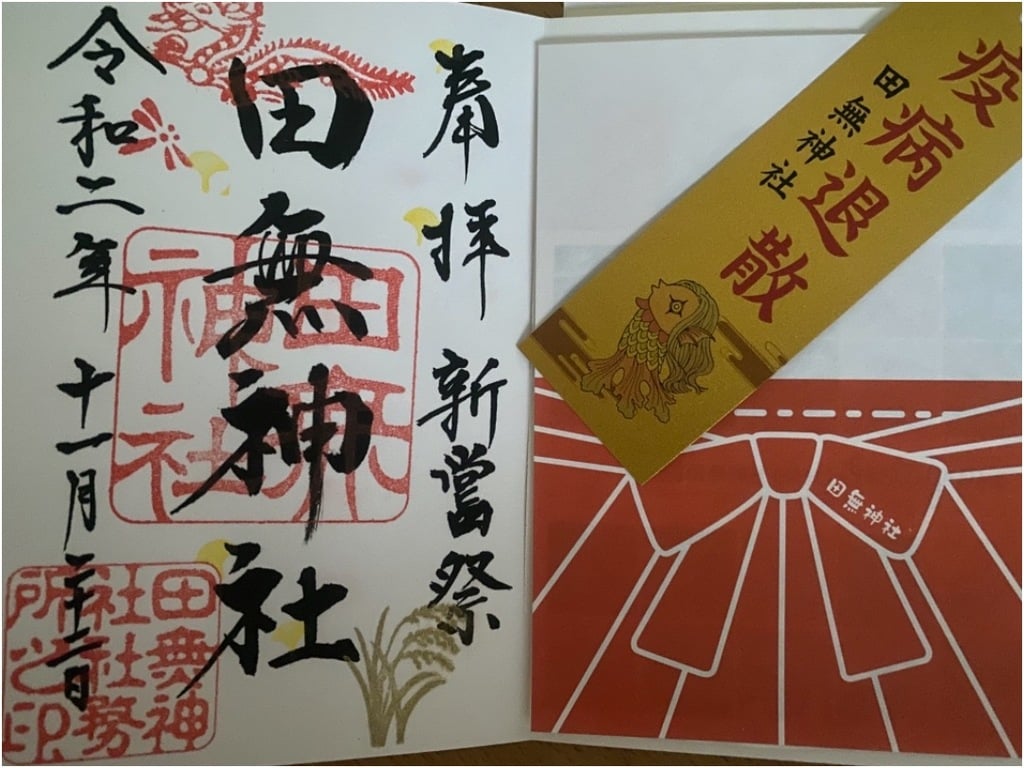 奉拝　新嘗祭
田無神社
令和二年十一月二十三日
田無神社
田無神
社社務
所之印
疫病退散
田無神社
田無神社